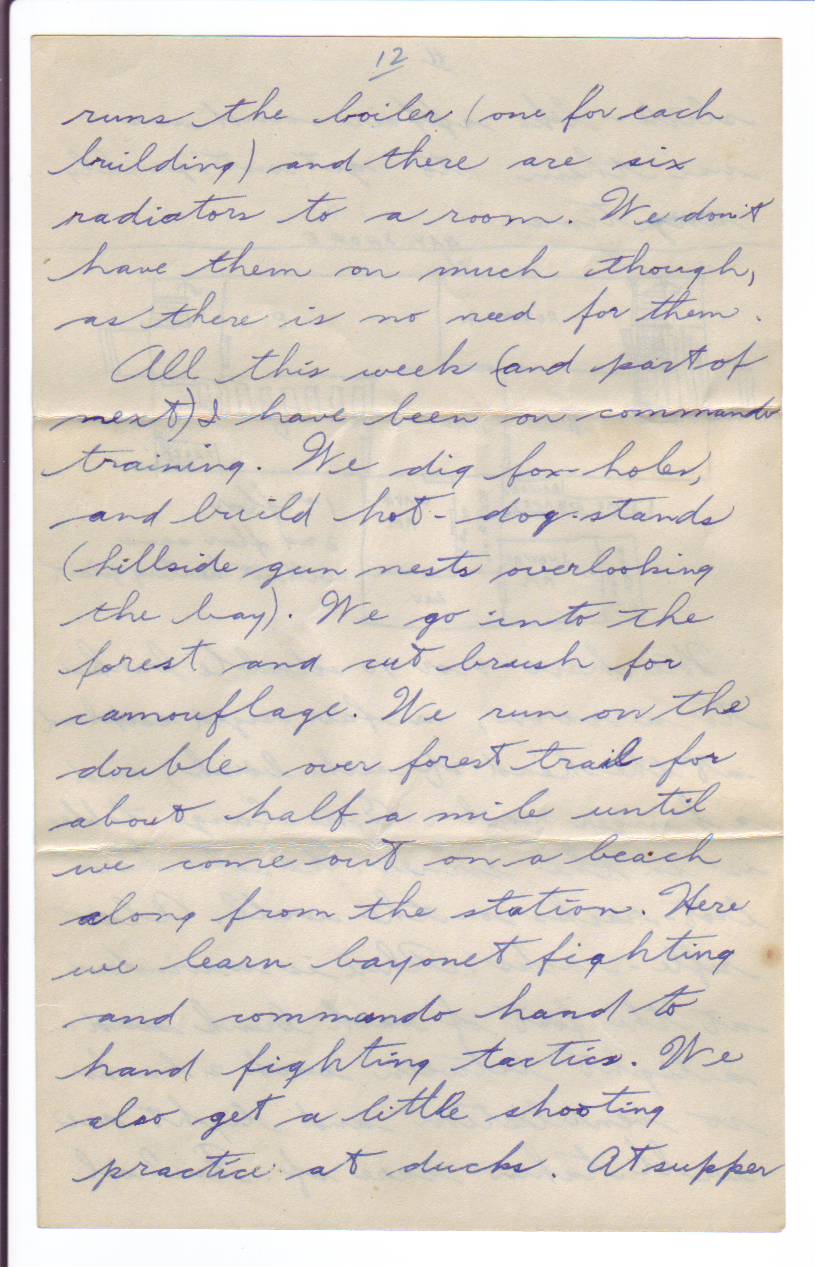 12
runs the boiler (one for each
building) and there are six
radiators to a room. We don't
have them on much though,
as there is no need for them.
All this week (and part of
next) I have been on commando
training. We dig fox-holes,
and build hot-dog-stands
(hillside gun nests overlooking
the bay). We go into the
forest and cut brush for
camouflage. We run on the
double over forest trail for
about half a mile until
we come out on a beach
along from the station. Here
we learn bayonet fighting
and commando hand to
hand fighting tactics. We
also get a little shooting
practice at ducks. At supper